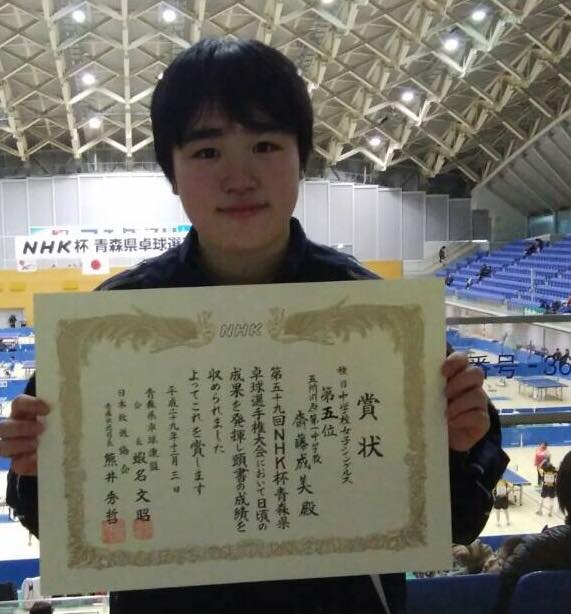 NHK杯 青森県卓球選
番号-36
NHK
賞状
種目 中学校女子シングルス
第五位
五所川原第一中学校
齋藤成美 殿
第五十九回NHK杯青森県
卓球選手権大会において日頃の
成果を発揮し頭書の成績を
収められました
よってこれを賞します
平成二十九年十二月三日
青森県卓球連盟
会長 蝦名文昭
日本放送協会
青森放送局長 熊井秀哲